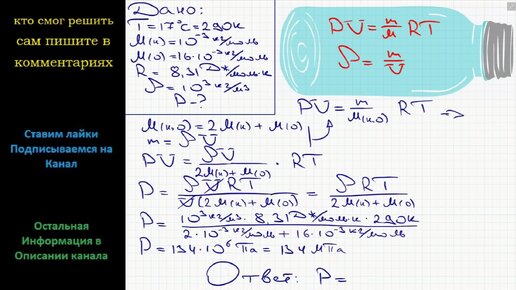 кто смог решить
сам пишите в
комментариях
Ставим лайки
Подписываемся на
Канал
Остальная
Информация в
Описании канала
Дано:
T = 17°C = 290К
M(н) = 10⁻³ кг/моль
M(о) = 16·10⁻³ кг/моль
R = 8,31 Дж/моль·к
ρ = 10³ кг/м³
P - ?
PV = m/M RT
ρ = m/V
PV = m/M(н₂о) RT =>
M(н₂о) = 2M(н) + M(о)
m = ρV
PV = ρV/(2M(н) + M(о)) · RT
P = ρVRT/(V(2M(н) + M(о))) = ρRT/(2M(н) + M(о))
P = (10³ кг/м³ · 8,31 Дж/моль·к · 290К)/(2·10⁻³ кг/моль + 16·10⁻³ кг/моль)
P = 134·10⁶ Па = 134 мПа
Ответ: P =